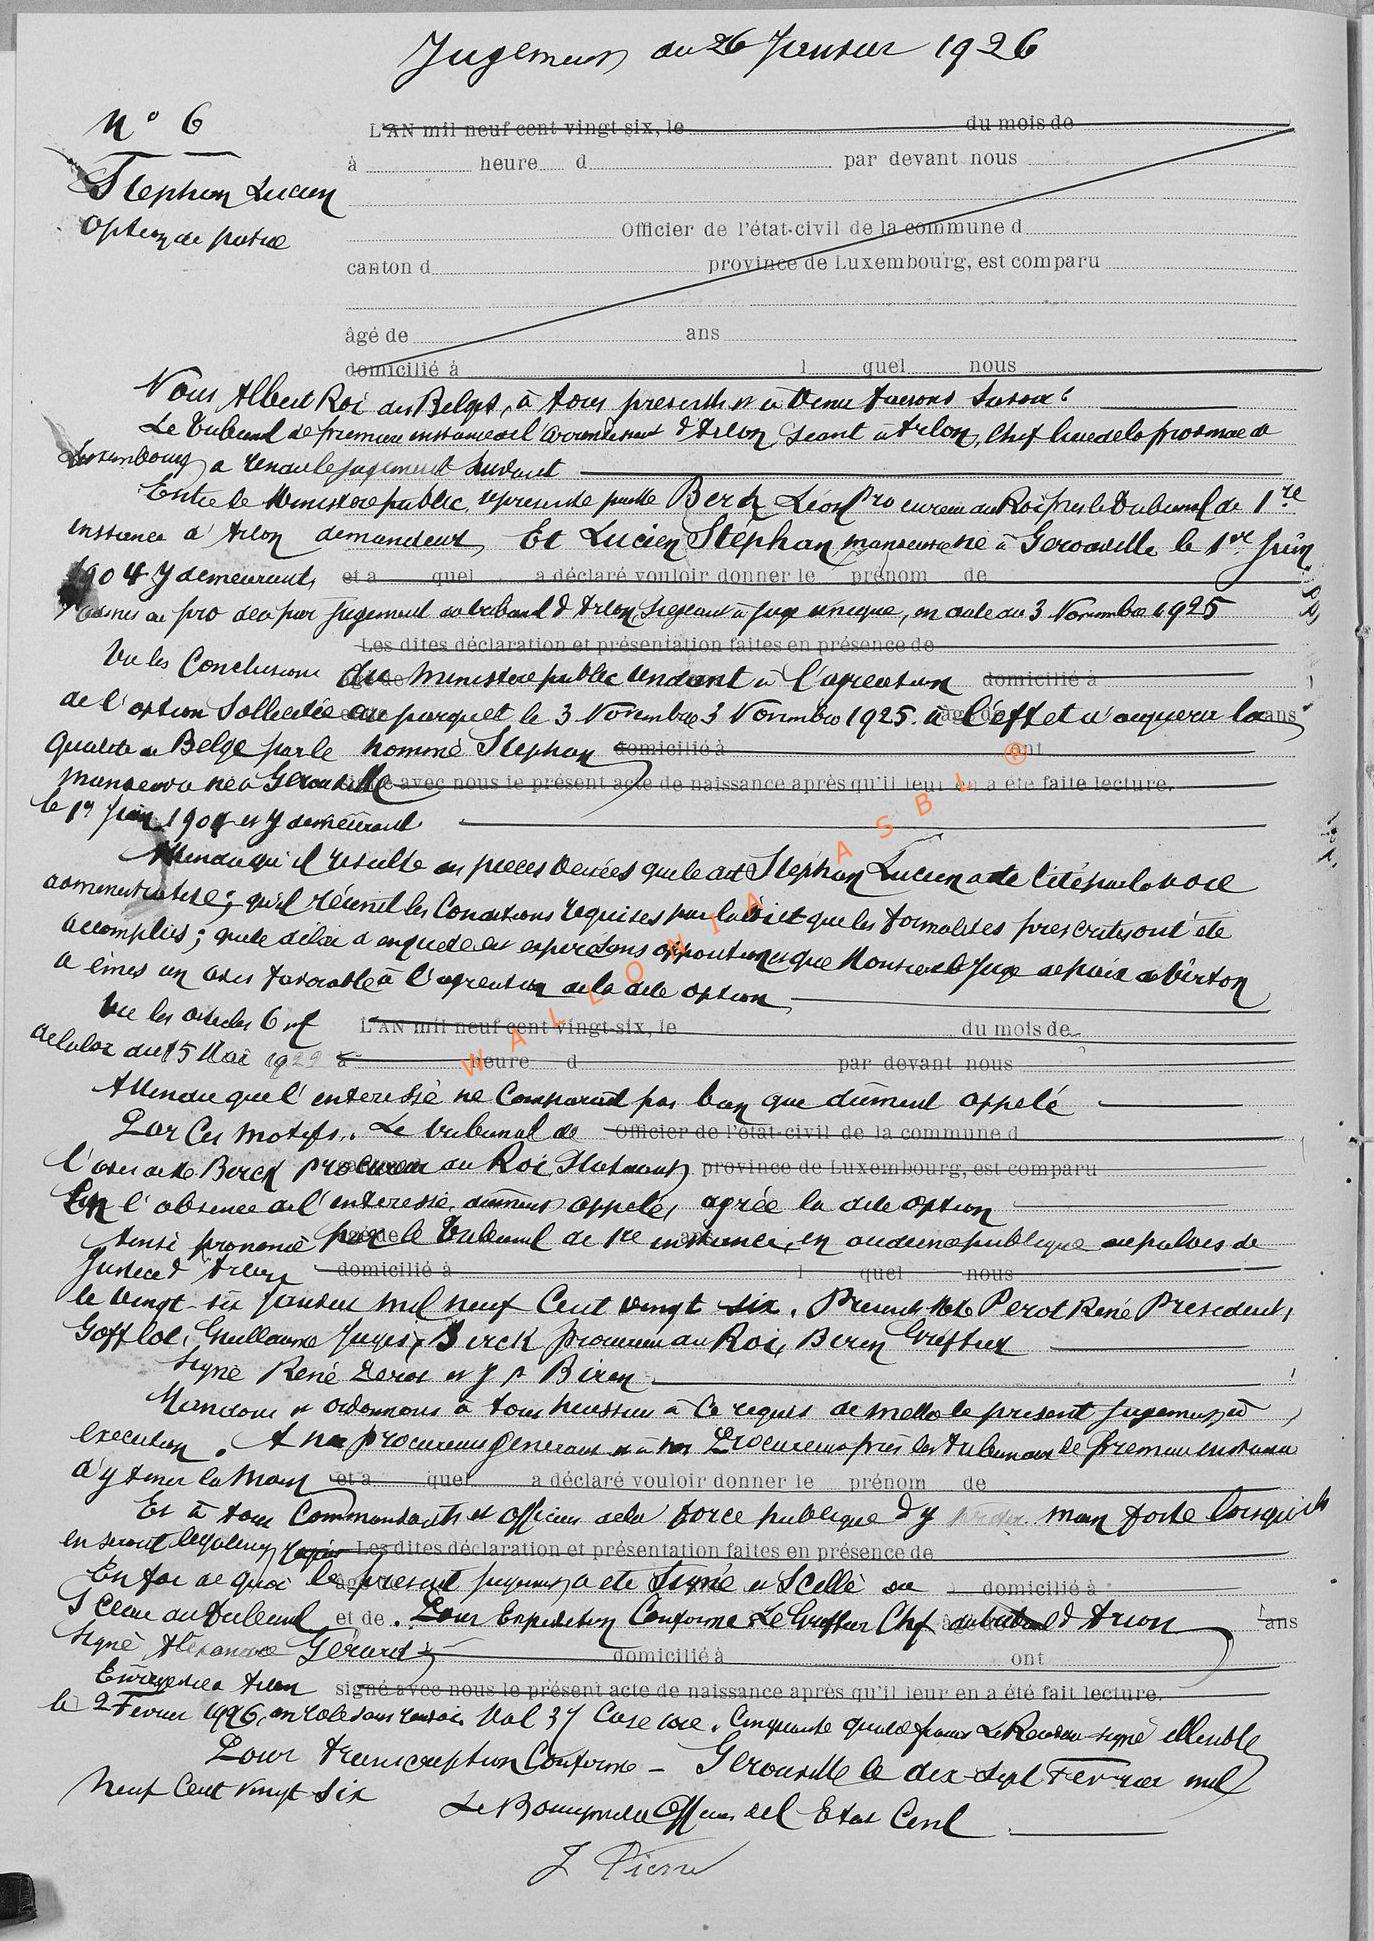 Jugement du 26 Janvier 1926
N° 6
Stephan Lucien
Option de patrie
L'AN mil neuf cent vingt-six, le du mois de
à heure d par devant nous
Officier de l'état-civil de la commune d
canton d province de Luxembourg, est comparu
âgé de ans
domicilié à l quel nous
Nous Albert Roi des Belges, à tous présents et à venir faisons savoir :
Le Tribunal de première instance de l'arrondissement d'Arlon, séant à Arlon, chef lieu de la province de
Luxembourg a rendu le jugement suivant
Entre le Ministère public, représenté par Me Berck Léon Procureur du Roi près le Tribunal de 1re
instance à Arlon demandeur, Et Lucien Stéphan, manoeuvre né à Gérouville le 1er Juin
1904 y demeurant, et a quel a déclaré vouloir donner le prénom de
par jugement du tribunal d'Arlon siégeant à juge unique, en date du 3 Novembre 1925
Les dites déclaration et présentation faites en présence de
Vu les Conclusions du Ministère public tendant à l'agréation domicilié à
de l'option sollicitée au parquet le 3 Novembre 3 Novembre 1925. à l'effet d'acquérir la ans
qualité de Belge par le nommé Stephan domicilié à ont
manoeuvre né à Gérouville avec nous le présent acte de naissance après qu'il leur en a été faite lecture.
le 1er Juin 1904 et y demeurant
Attendu qu'il résulte des pièces versées que le dit Stéphan Lucien a été cité par la voie
administrative; qu'il réunit les Conditions requises par la loi et que les formalités prescrites ont été
accomplies; que le délai d'enquête est expiré sans opposition et que Monsieur le Juge de paix de Virton
a émis un avis favorable à l'agréation de la dite option
Vu les articles 6 et L'AN mil neuf cent vingt-six, le du mois de
de la loi du 15 Mai 1922 à heure d par devant nous
Attendu que l'intéressé ne comparait pas bien que dûment appelé
Par ces motifs. Le tribunal de Officier de l'état-civil de la commune d
l'avis de Me Berck procureur du Roi, Statuant, province de Luxembourg, est comparu
En l'absence de l'intéressé, dûment appelé, agrée la dite option
Ainsi prononcé par le Tribunal de 1re instance, en audience publique au palais de
Justice d'Arlon domicilié à l quel nous
le vingt-six Janvier mil neuf cent vingt six. Présents Perot René Président,
Gofflot, Guillaume Juges, Berck procureur du Roi, Biren Greffier
Signé René Perot et J P Biren
Mandons et ordonnons à tous huissiers à ce requis de mettre le présent jugement à
exécution. A nos procureurs généraux et à nos Procureurs près les tribunaux de première instance
d'y tenir la main et a quel a déclaré vouloir donner le prénom de
Et à tous Commandants et officiers de la force publique d'y prêter main forte lorsqu'ils
en seront légalement requis Les dites déclaration et présentation faites en présence de
En foi de quoi le présent jugement a été signé et scellé du domicilié à
Sceau du Tribunal et de . Pour Expédition Conforme Le Greffier Chef du tribunal d'Arlon ans
Signé Alexandre Gérard domicilié à ont
Enregistré à Arlon signé avec nous le présent acte de naissance après qu'il leur en a été fait lecture.
le 2 Février 1926, un rôle sans renvoi Vol 37 Case Cinquante quatre francs Le Receveur signé
Pour transcription Conforme - Gérouville le dix-sept Février mil
neuf cent vingt six
Le Bourgmestre Officier de l'Etat Civil
J Pierre
WALLONIA ASBL ®